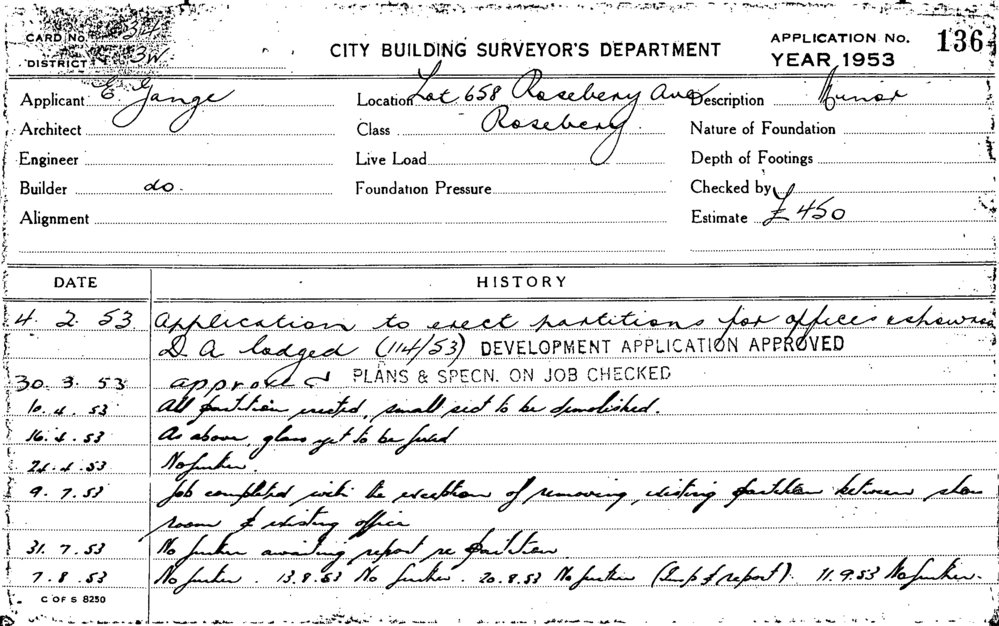 CARD No. 34
DISTRICT 3W
CITY BUILDING SURVEYOR'S DEPARTMENT
APPLICATION No. 136
YEAR 1953
Applicant E Gange
Location Lot 658 Rosebery Ave
Description Minor
Architect
Class Rosebery.
Nature of Foundation
Engineer
Live Load
Depth of Footings
Builder do.
Foundation Pressure
Checked by
Alignment
Estimate £450
DATE HISTORY
4. 2. 53 Application to erect partitions for offices &
D. A lodged (114/53) DEVELOPMENT APPLICATION APPROVED
30. 3. 53 approved PLANS & SPECN. ON JOB CHECKED
10. 4. 53 All partition erected, small sect to be demolished.
16. 4. 53 As above, glass yet to be fixed
24. 4. 53 No further.
9. 7. 53 Job completed with the exception of removing existing partition between show
room & existing office
31. 7. 53 No further awaiting report re partition.
7. 8. 53 No further. 13.8.53 No further. 20.8.53 No further (Insp & report). 11.9.53 No further.
C OF S 8250